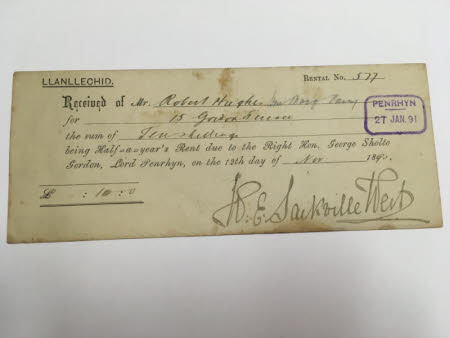 LLANLLECHID.
RENTAL No. 577
Received of Mr. Robert Hughes
for 15 Gordon Terrace
PENRHYN
27 JAN. 91
the sum of Ten shillings
being Half-a-year's Rent due to the Right Hon. George Sholto
Gordon, Lord Penrhyn, on the 12th day of Nov 1890.
£ : 10 : 0
W. E. Sackville West